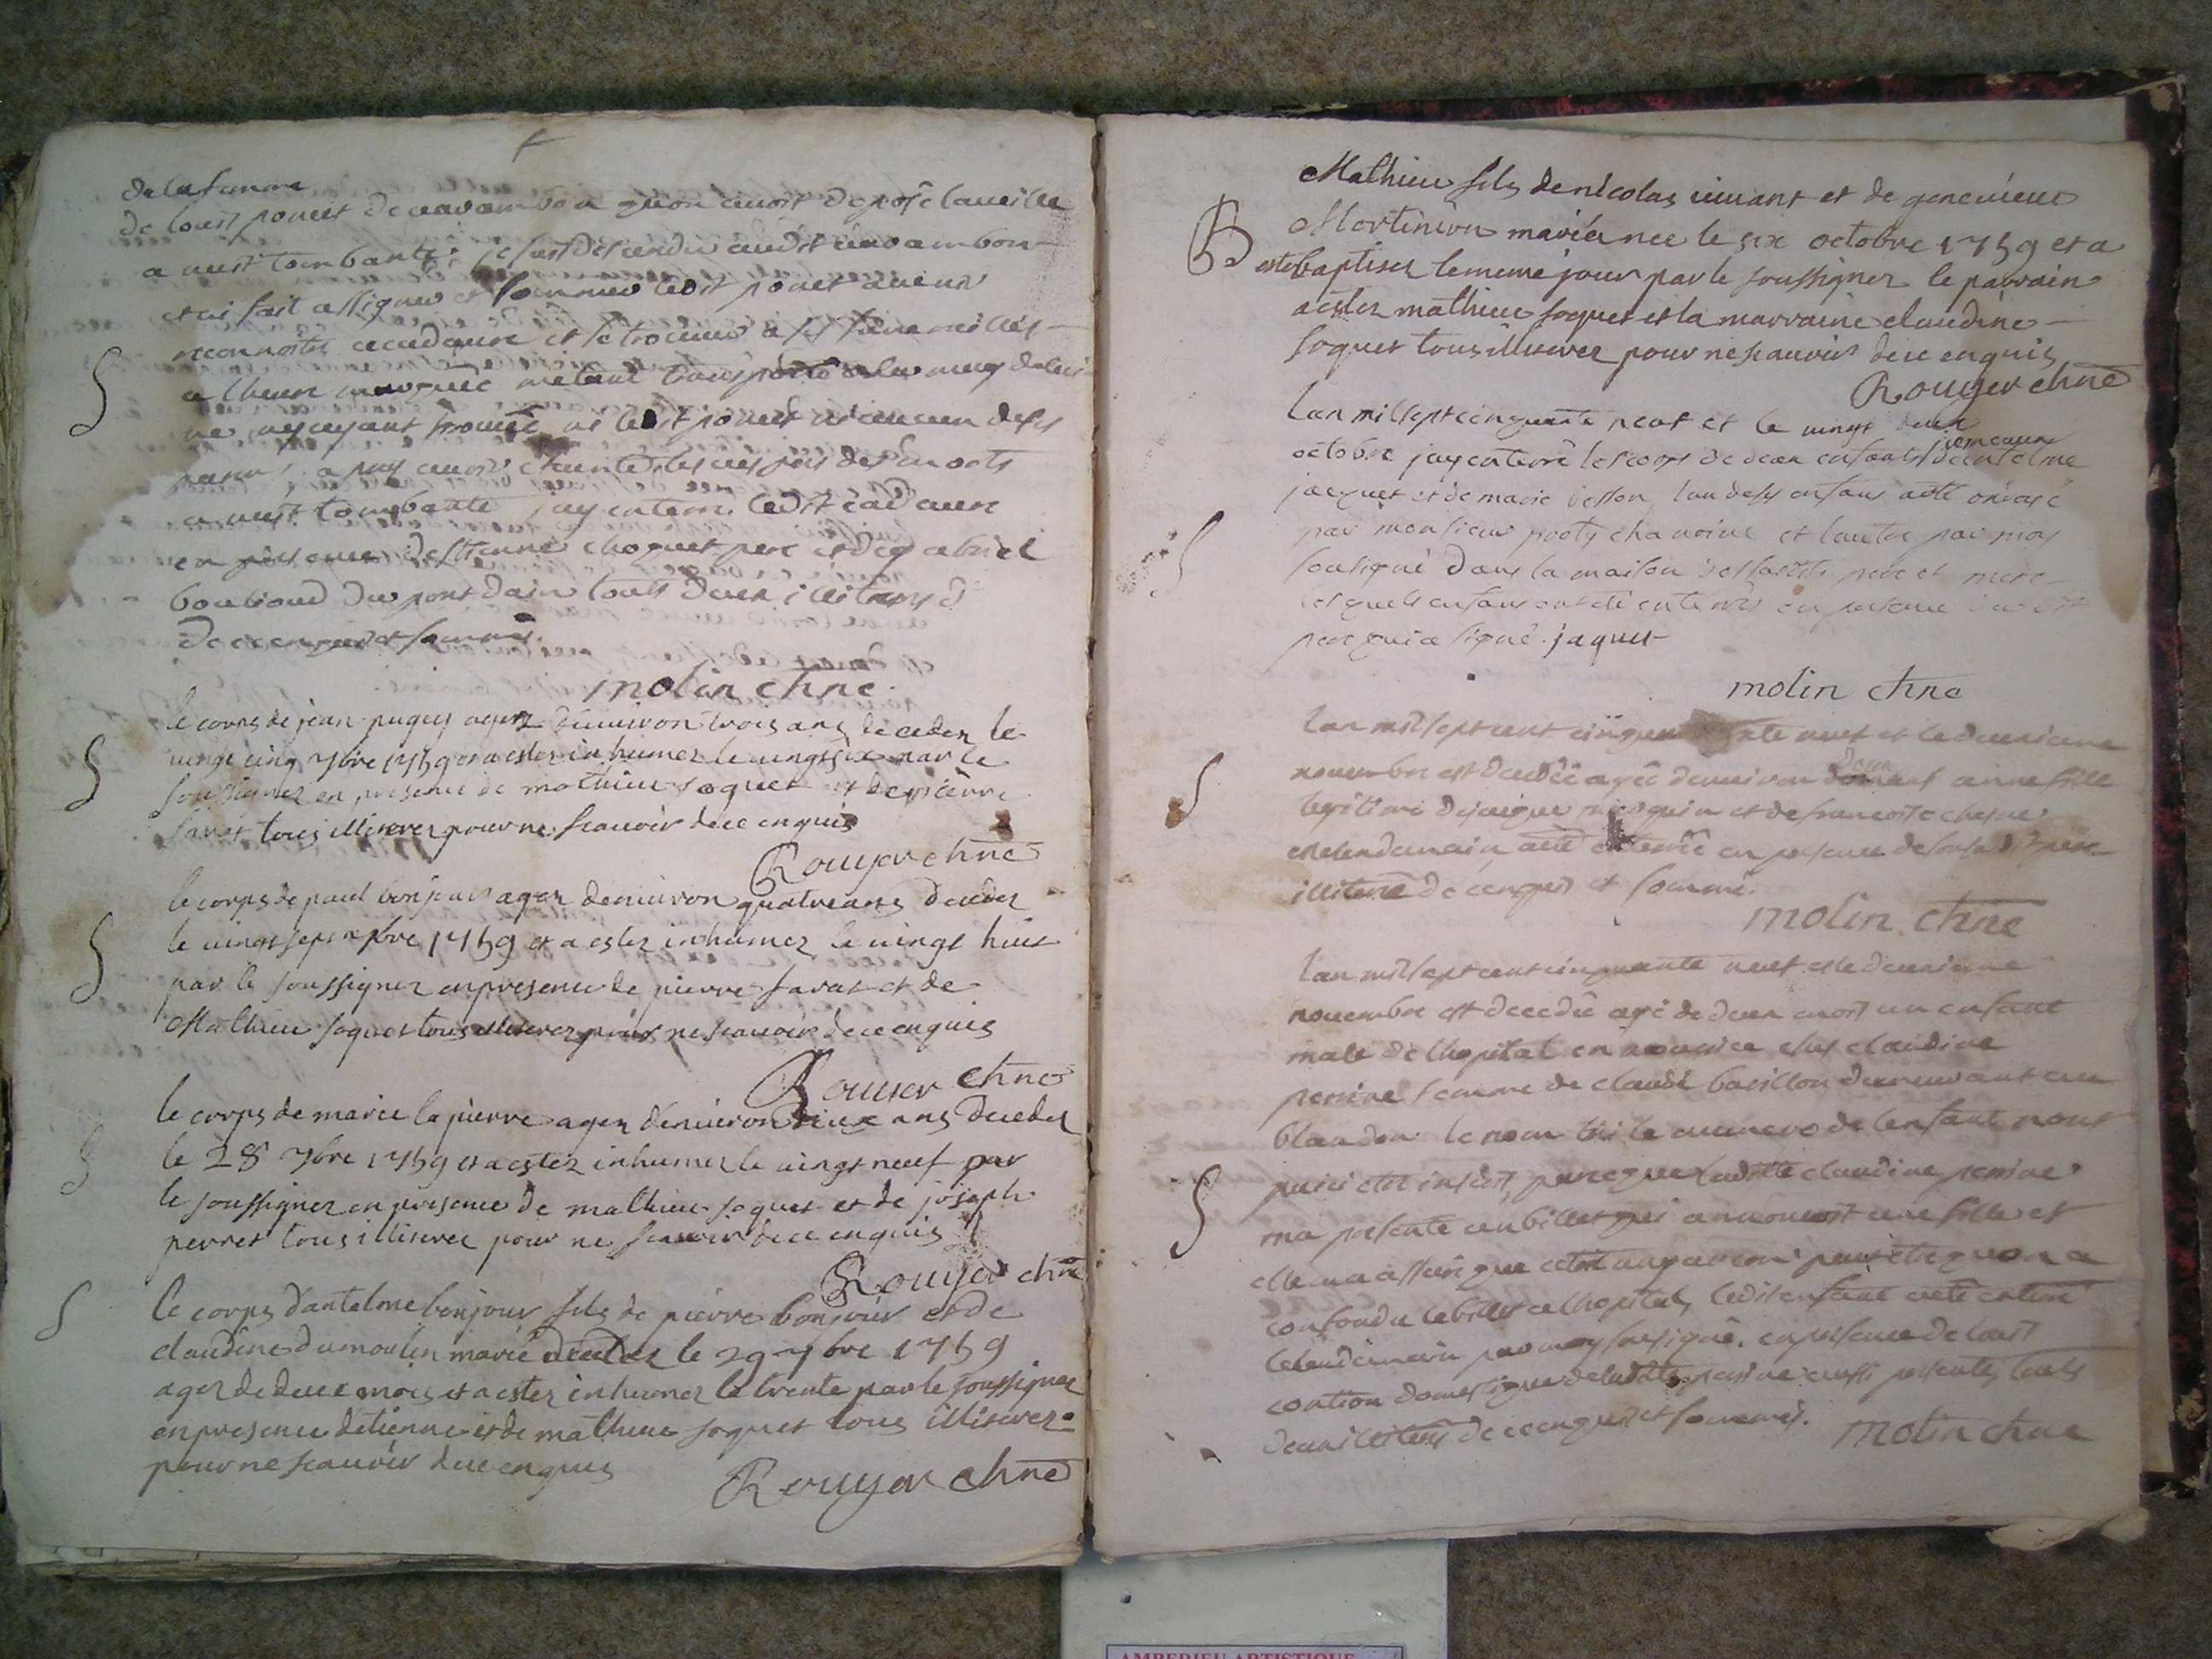 de la femme
de louis pouet de varambon quon avoit deposé la veille
a nuit tombante; je suis descendu audit varambon
et ai fait assigner et sommer ledit pouet a venir
reconnoitre cecadavre et se trouver a ses funerailles
a lheure marquée metant transporté
ne ayant trouvé ni ledit pouet ni aucun de ses
apres avoir chanté les vespres des morts
a nuit tombante jay enterré ledit cadavre
en presence destienne choquet pere et de gabriel
bouvioud du pont dain touts deux illiterés
de ce enquis et sommés.
molin chne.
S
le corps de jean pugey agez denviron trois ans decedez le
vingt cinq 7bre 1759 et a estez inhumez le vingt six par le
soussignez en presence de mathieu soquet et de pierre
savat tous illiterez pour ne scavoir de ce enquis
Rouyer chne
S
le corps de paul bonjour agez denviron quatre ans decedez
le vingt sept 7bre 1759 et a estez inhumez le vingt huit
par le soussignez en presence de pierre savat et de
Mathieu soquet tous illiterez pour ne scavoir de ce enquis
Rouyer chne
S
le corps de marie lapierre agez denviron deux ans decedez
le 28 7bre 1759 et a estez inhumez le vingt neuf par
le soussignez en presence de mathieu soquet et de joseph
perret tous illiterez pour ne scavoir de ce enquis
Rouyer chne
S
le corps dantelme bonjour fils de pierre bonjour et de
claudine dumoulin marié decedez le 29 7bre 1759
agez de deux mois et a estez inhumez le trente par le soussignez
en presence detienne et de mathieu soquet tous illiterez
pour ne scavoir de ce enquis
Rouyer chne
S
Mathieu fils de nicolas vivant et de genevieve
Mortinion marié nee le six octobre 1759 et a
B
este baptisez le meme jour par le soussignez le parrain
a estez mathieu soquet et la marraine claudine
soquet tous illiterez pour ne scavoir de ce enquis
Rouyer chne
lan mil sept cinquante neuf et le vingt deux
jumeaux
octobre jay enterré les corps de deux enfants dantelme
jacquet et de marie besson, lun desq enfans a été ondoyé
par monsieur prost chanoine et lautre par moy
S
soussigné dans la maison desdits pere et mere
lesquels enfans ont été enterrés en presence dudit
pere qui a signé. jaquet
molin chne
lan mil sept cent cinquante neuf et le deuxieme
novembre est decedée agée denviron deux ans anne fille
S
legitime de et de francoise
et le lendemain a été enterrée en presence de sondit pere
illiteré de ce enquis et sommé.
molin chne
lan mil sept cent cinquante neuf et le deuxieme
novembre est decedé agé de deux mois un enfant
male de lhopital en nourrice chez claudine
perrine femme de claude basillon demeurant au
blandon le nom ni le numero de lenfant nont
pu ici etre inserés, parceque ladite claudine perrine
S
ma presenté un billet qui annoncoit une fille et
elle ma assuré que cetoit un garcon peut etre quon a
confondu le billet a lhopital, ledit enfant a été enterré
le lendemain par moy soussigné. en presence de louis
domestique de ladite perrine aussi presente, touts
deux illiterés de ce enquis et sommés.
molin chne
AMBERIEU ARTISTIQUE